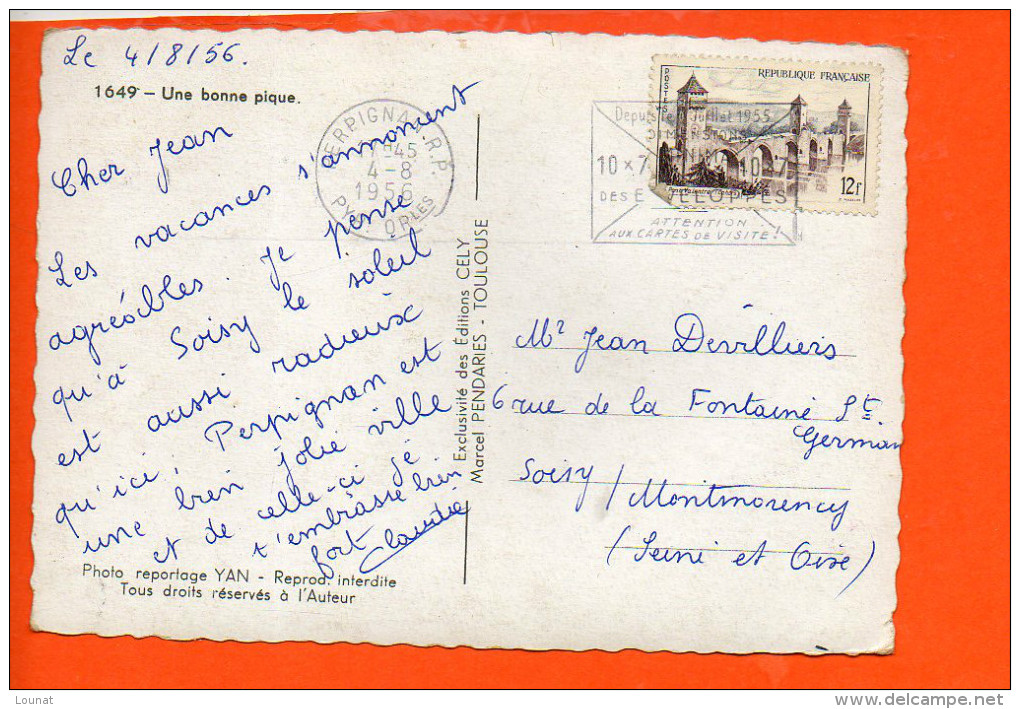 Le 4/8/56.
1649 – Une bonne pique.
Cher Jean
Les vacances s'annoncent
agréables. Je pense
qu'à Soisy le soleil
est aussi radieux
qu'ici. Perpignan est
une bien jolie ville
et de celle-ci je
t'embrasse bien
fort Claudie
Photo reportage YAN - Reprod. interdite
Tous droits réservés à l'Auteur
Exclusivité des Éditions CELY
Marcel PENDARIES - TOULOUSE
PERPIGNAN R.P.
45
4-8
1956
PYR. ORLES
POSTES
REPUBLIQUE FRANÇAISE
12F
Depuis le Juillet 1955
DIMENSIONS
10 x 7 MINIMA 10 x 7
DES ENVELOPPES
ATTENTION
AUX CARTES DE VISITE!
Mr Jean Devilliers
6 rue de la Fontaine St
Germain
Soisy / Montmorency
(Seine et Oise)
Lounat
www.delcampe.net